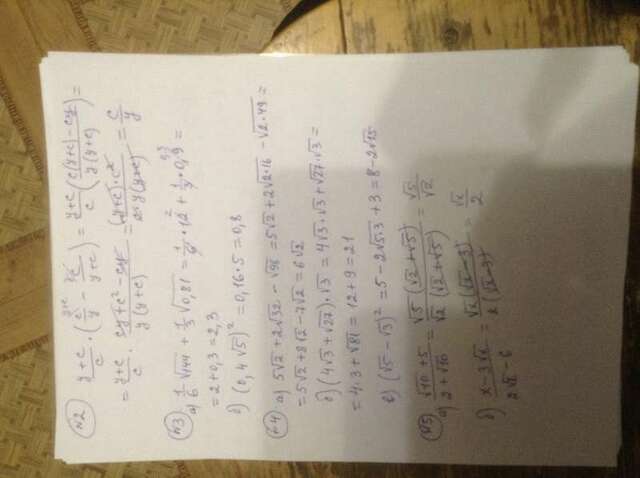 №2 (y+c)/c · (c/y − c/(y+c)) = (y+c)/c (c(y+c) − cy)/(y(y+c)) =
= (y+c)/c · (cy + c² − cy)/(y(y+c)) = ((y+c)·c²)/(c·y(y+c)) = c/y
№3 а) 1/6 √144 + 1/3 √0,81 = 1/6 · 12 + 1/3 · 0,9 =
= 2 + 0,3 = 2,3
б) (0,4√5)² = 0,16·5 = 0,8
№4 а) 5√2 + 2√32 − √98 = 5√2 + 2√2·16 − √2·49 =
= 5√2 + 8√2 − 7√2 = 6√2
б) (4√3 + √27)·√3 = 4√3·√3 + √27·√3 =
= 4·3 + √81 = 12 + 9 = 21
в) (√5 − √3)² = 5 − 2√5·3 + 3 = 8 − 2√15
№5 а) (√10 + 5)/(2 + √10) = √5(√2 + √5)/√2(√2 + √5) = √5/√2
б) (x − 3√x)/(2√x − 6) = √x(√x − 3)/2(√x − 3) = √x/2